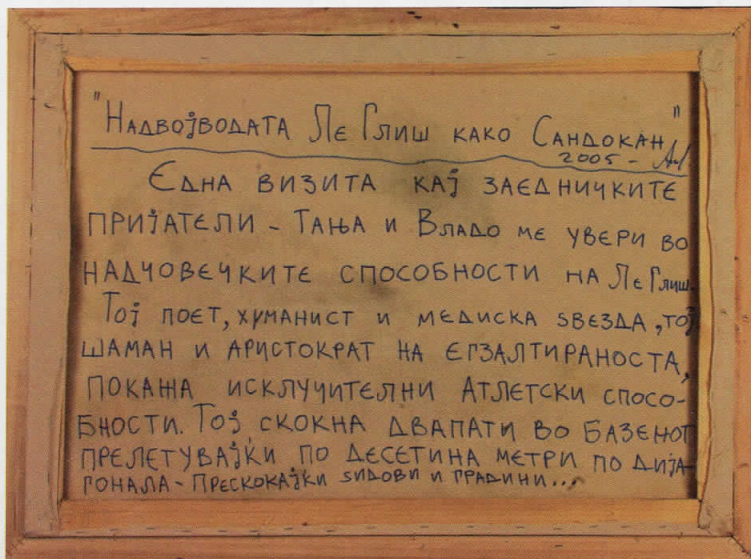 "Надвојводата Ле Глиш како Сандокан"
2005 - А.
Една визита кај заедничките
пријатели - Тања и Владо ме увери во
надчовечките способности на Ле Глиш.
Тој поет, хуманист и медиска ѕвезда, тој
шаман и аристократ на егзалтираноста,
покажа исклучителни атлетски спосо-
бности. Тој скокна двапати во базенот
прелетувајќи по десетина метри по дија-
гонала - прескокајќи ѕидови и градини...